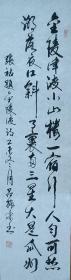 金陵津渡小山樓一宿行人自可愁
潮落夜江斜月裏兩三星火是瓜州
張祜題金陵渡詩